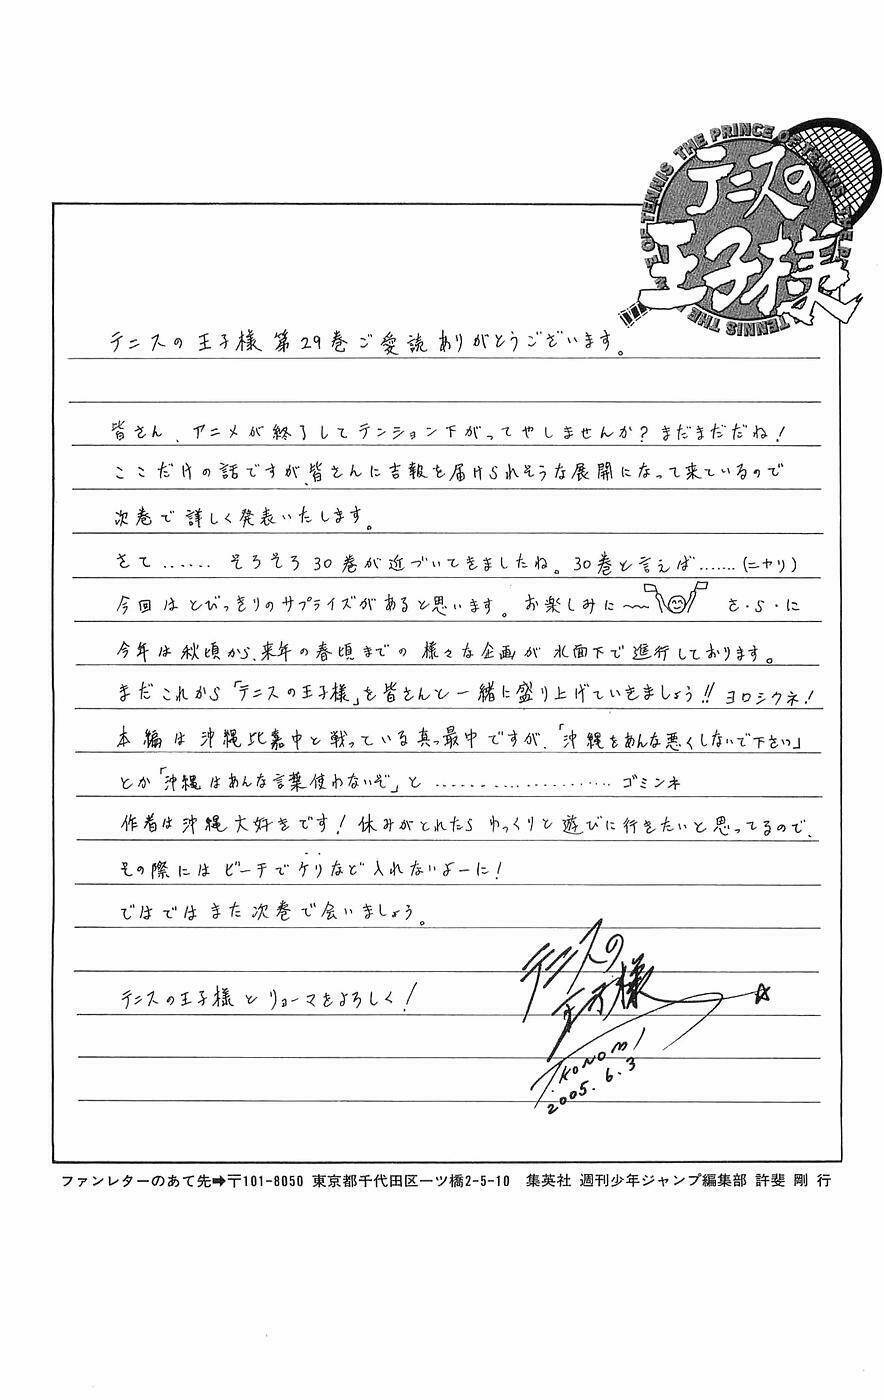 THE PRINCE OF TENNIS THE PRINCE OF TENNIS THE
テニスの
王子様
テニスの王子様 第29巻ご愛読ありがとうございます。
皆さん、アニメが終了してテンション下がってやしませんか?まだまだだね!
ここだけの話ですが、皆さんに吉報を届けられそうな展開になって来ているので
次巻で詳しく発表いたします。
さて…… そろそろ30巻が近づいてきましたね。30巻と言えば……(ニヤリ)
今回はとびっきりのサプライズがあると思います。お楽しみに〜〜 さ・ら・に
今年は秋頃から、来年の春頃までの様々な企画が水面下で進行しております。
まだこれから「テニスの王子様」を皆さんと一緒に盛り上げていきましょう!! ヨロシクネ!
本編は沖縄比嘉中と戦っている真っ最中ですが、「沖縄をあんな悪くしないで下さい」
とか「沖縄はあんな言葉使わないぞ」と ………………… ゴミンネ
作者は沖縄大好きです!休みがとれたらゆっくりと遊びに行きたいと思ってるので、
その際にはビーチでケリなど入れないよーに!
ではではまた次巻で会いましょう。
テニスの王子様とリョーマをよろしく!
テニスの
王子様
T.KONOMI
2005.6.3
ファンレターのあて先➡〒101-8050 東京都千代田区一ツ橋2-5-10 集英社 週刊少年ジャンプ編集部 許斐 剛 行